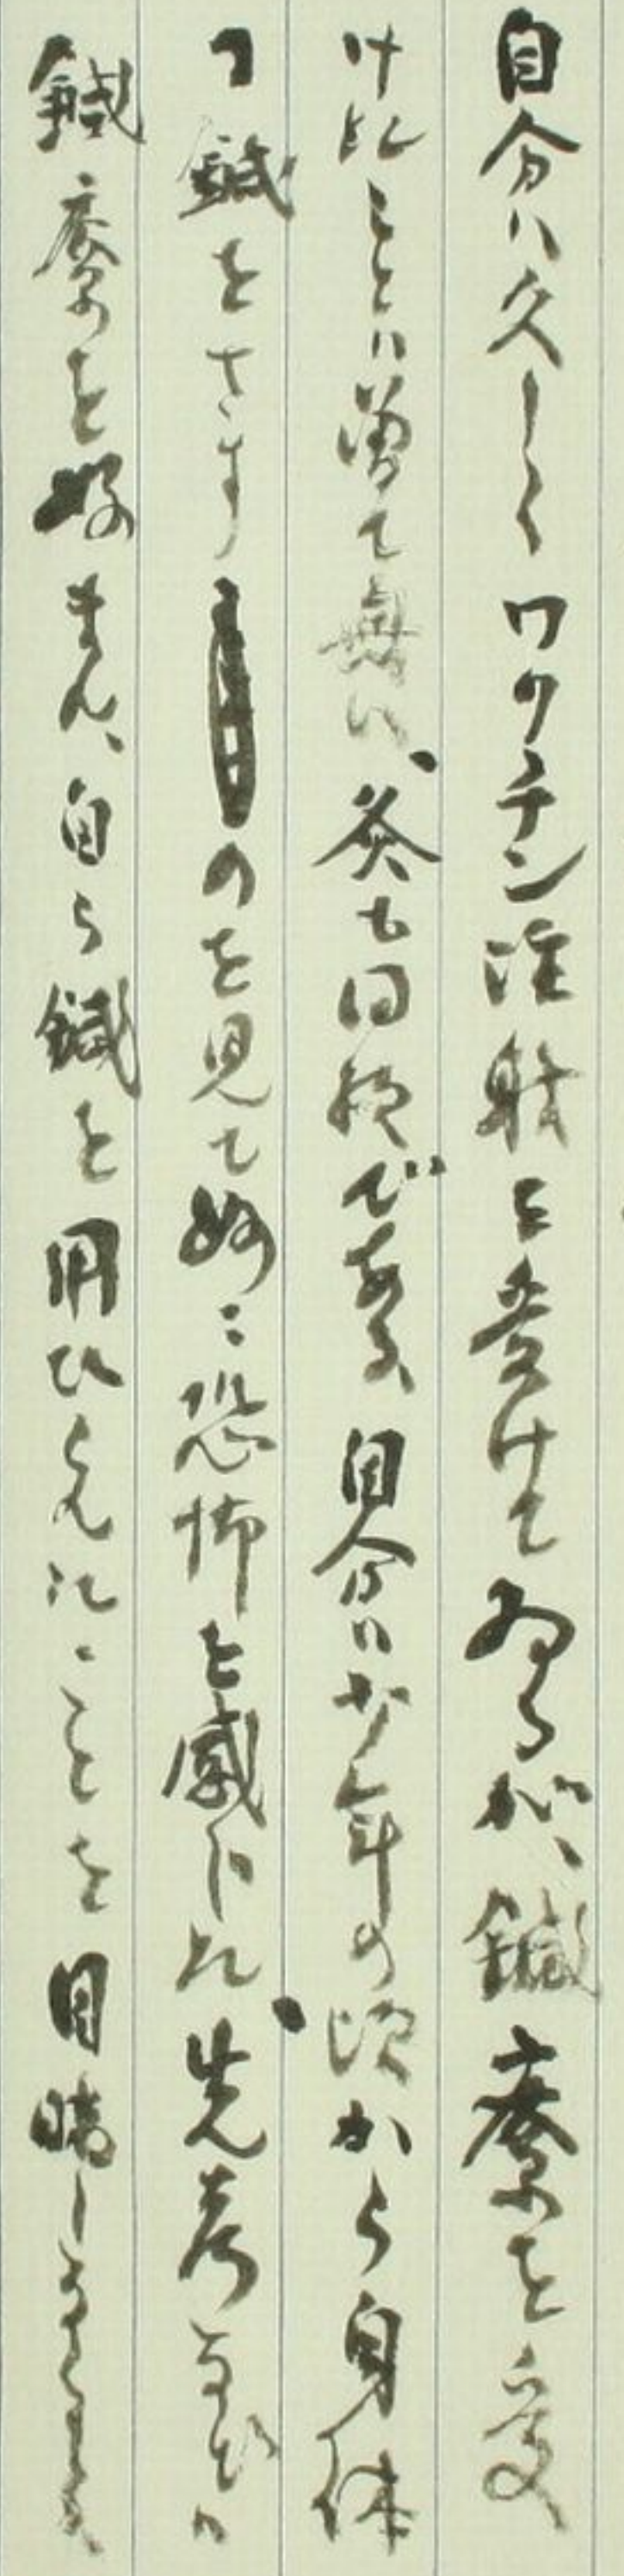 自分ハ久しくワクチン注射を受けてゐるが、鍼療を受
けたことハ曽て無い、灸も同様である、自分ハ少年の頃から身体
つ鍼をさすのを見て妙ニ恐怖を感じた、先考などハ
鍼療を好まん、自ら鍼を用ひられたことを目睹し